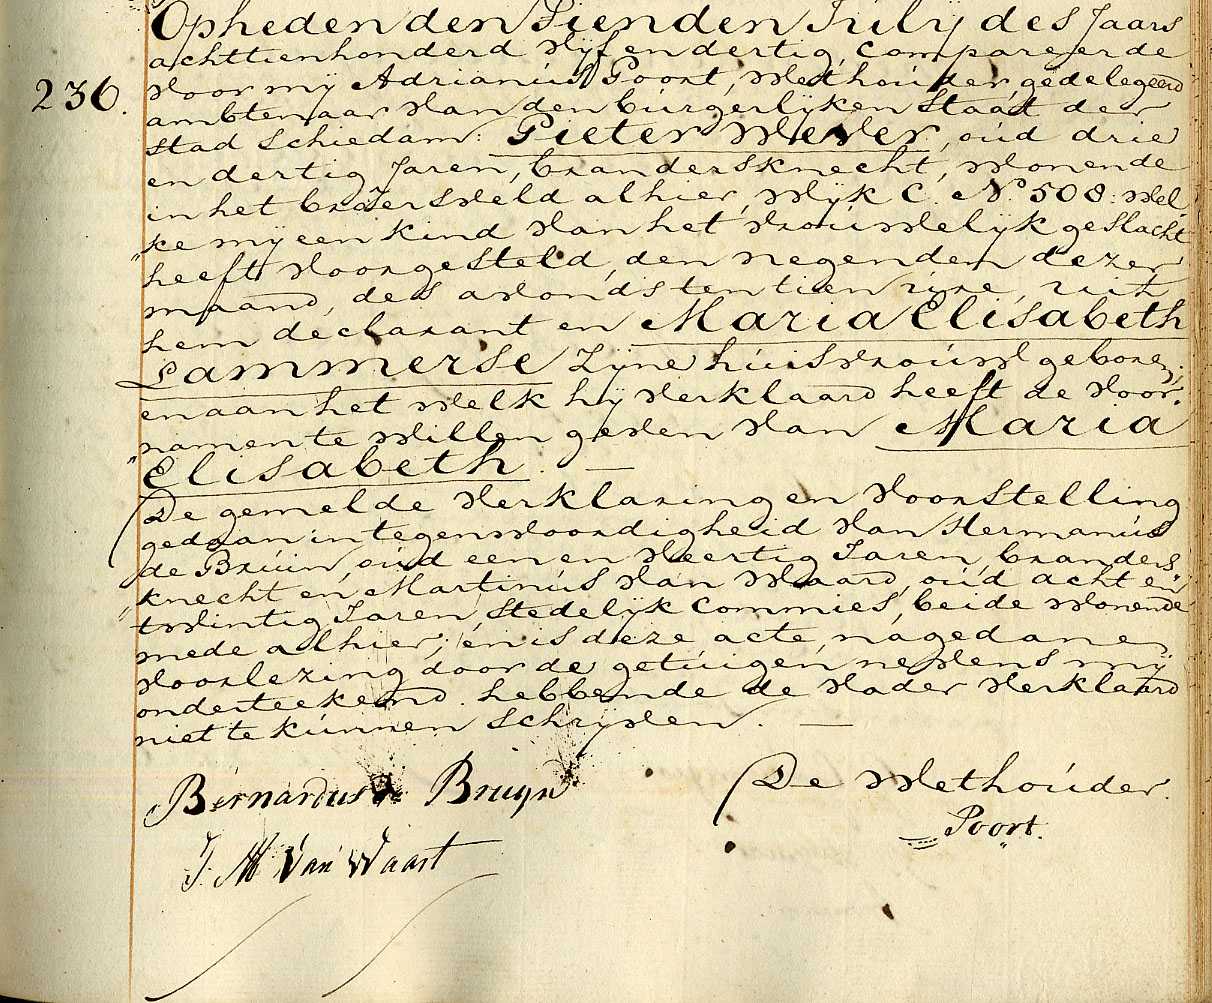 Op heden den Tienden Julÿ des Jaars
achttienhonderd vijf en dertig, compareerde
voor mÿ Adrianus Poort, Wethouder, gedelegeerd
236. ambtenaar van den burgerlÿken Staat der
stad Schiedam: Pieter Wever, oud drie
en dertig Jaren, brandersknecht, wonende
in het Broersveld alhier, Wÿk C. No. 508: wel-
"ke mÿ een kind van het vrouwelÿk geslacht
heeft voorgesteld, den negenden dezer
maand, des avonds ten tien ure, uit
hem declarant en Maria Elisabeth
Lammerse zÿne huisvrouw geboren;
en aan het welk hÿ verklaard heeft de voor-
namen te willen geven van Maria
"Elisabeth. —
De gemelde verklaring en voorstelling
gedaan in tegenwoordigheid van Hermanus
de Bruin, oud een en veertig Jaren, branders-
knecht en Martinus van Waard, oud acht en
"twintig Jaren, stedelÿk Commies, beide wonende
mede alhier; en is deze acte, nagedanen
voorlezing door de getuigen, nevens mÿ
onderteekend. hebbende de vader verklaard
niet te kunnen schrÿven. —
Bernardus de Bruyn
De Wethouder.
Poort.
J. M Van Waart